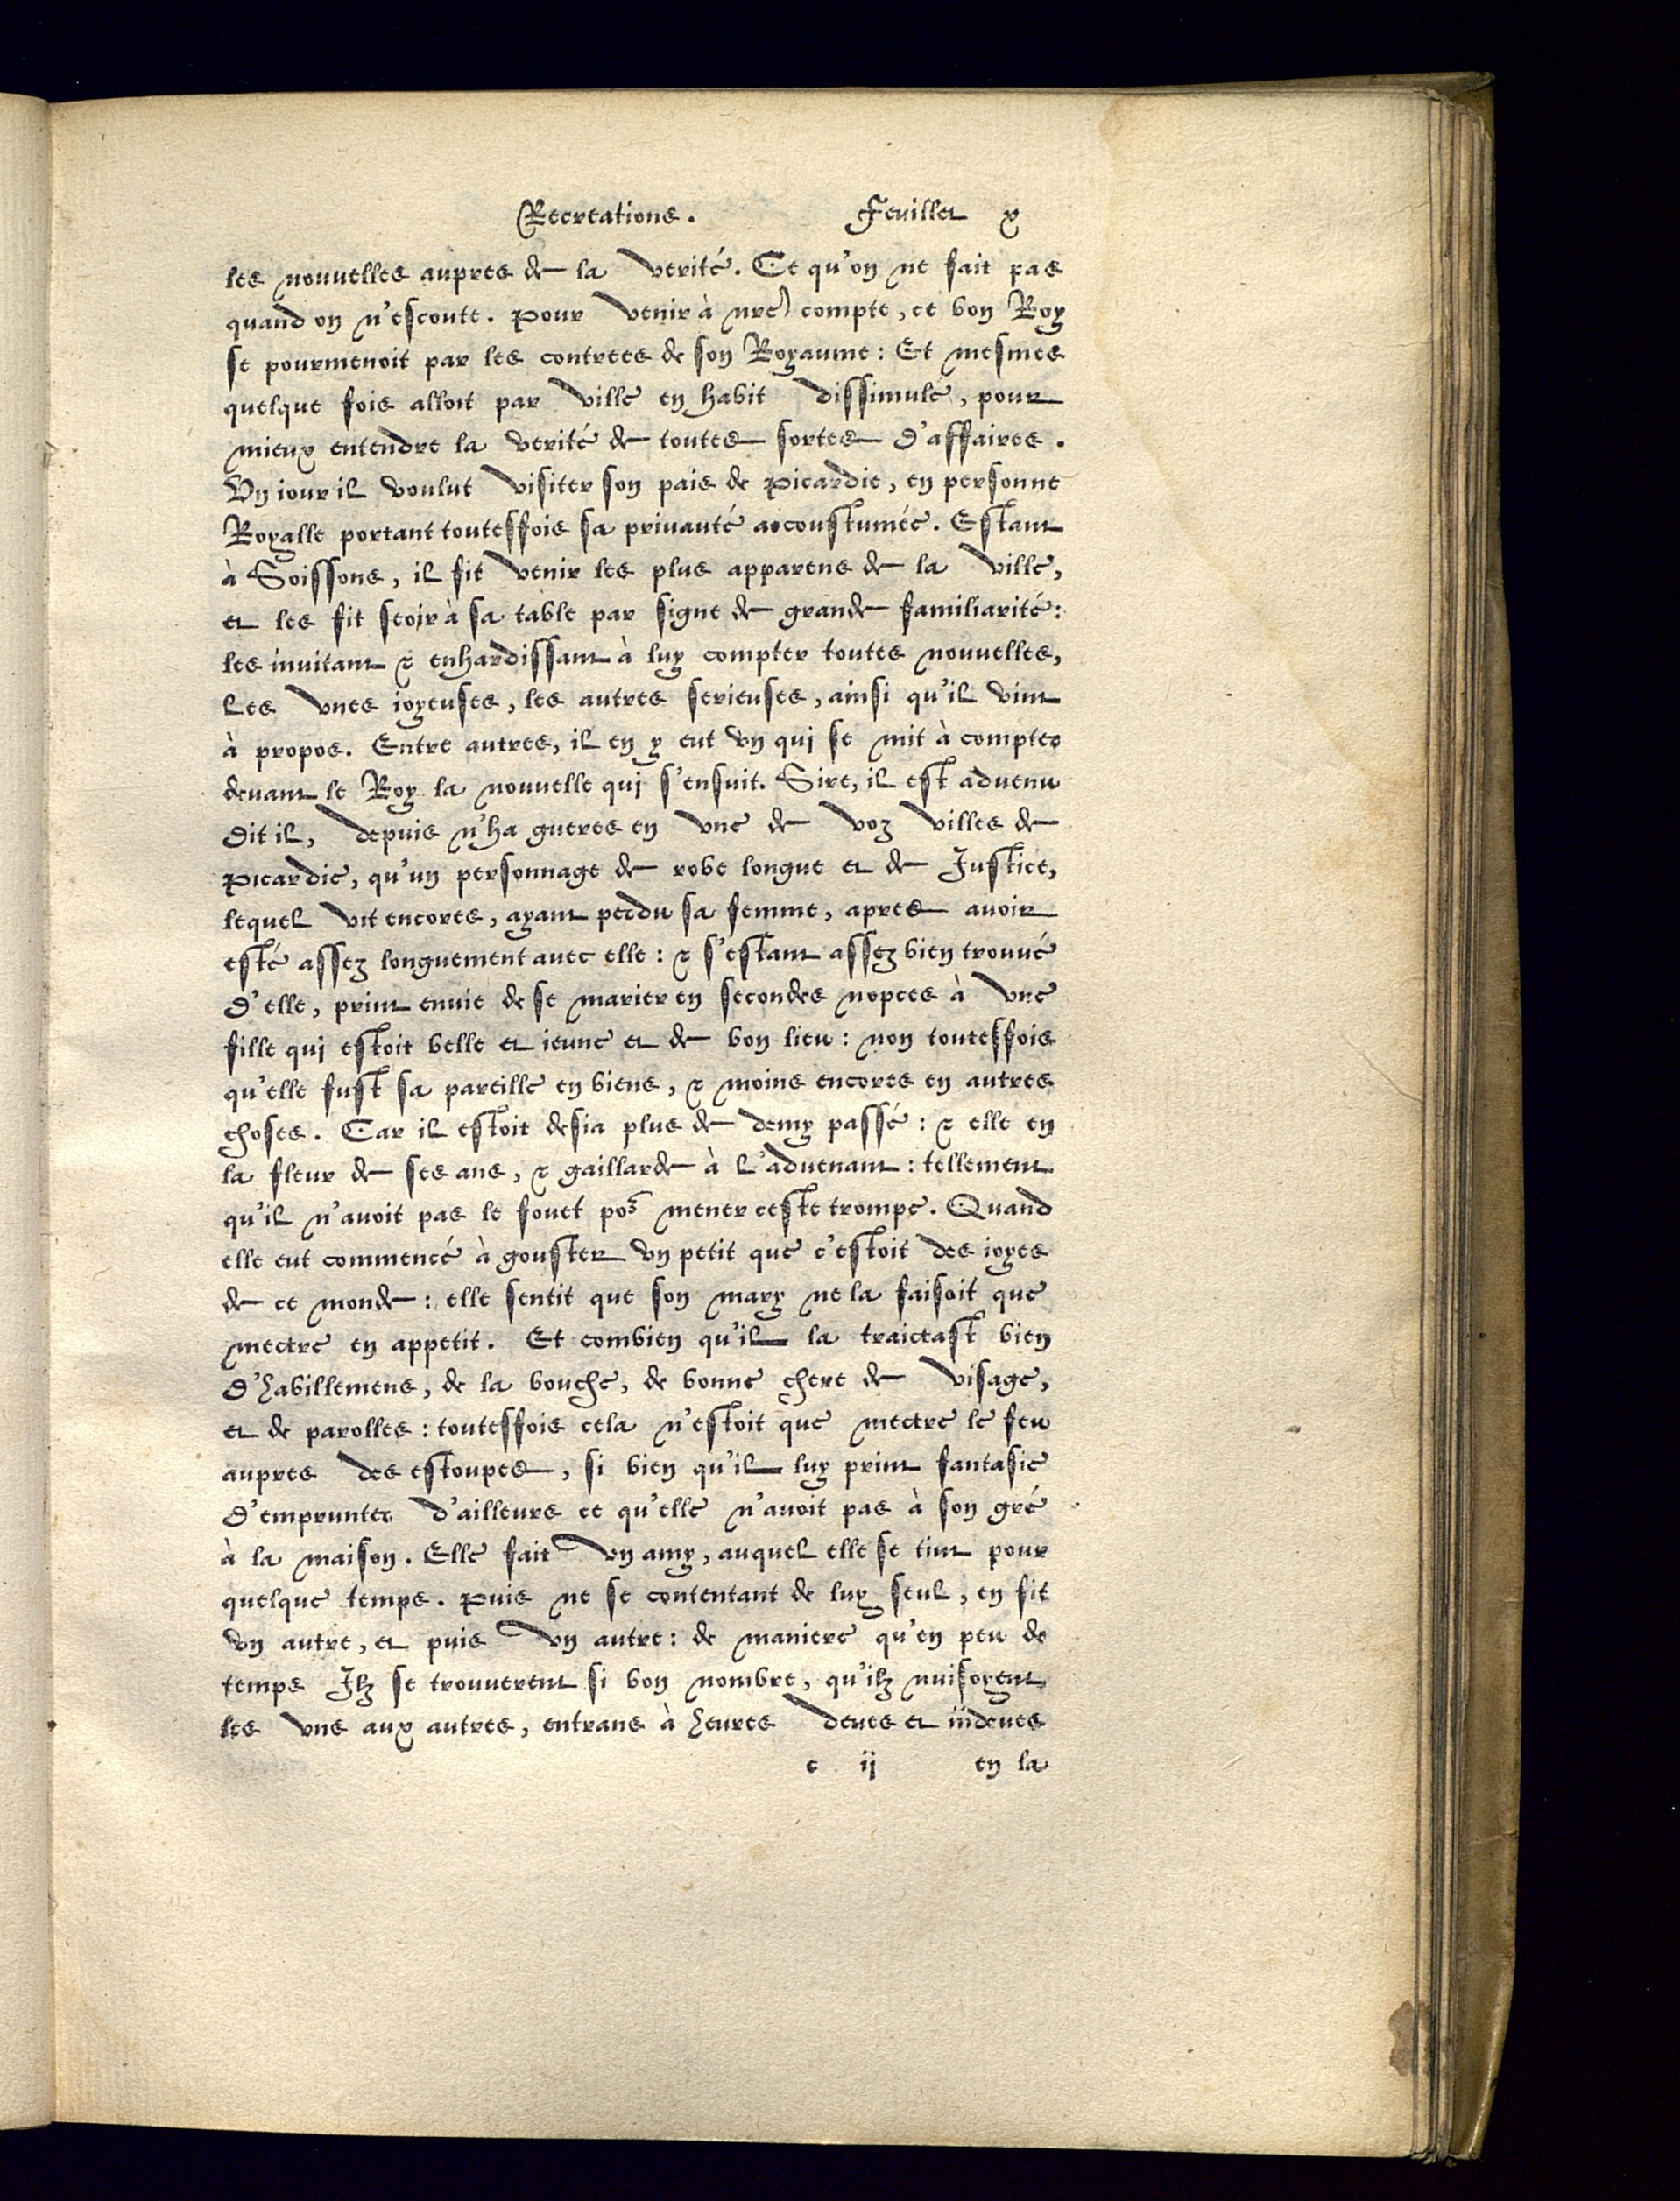 Recreations. Feuillet x
les nouuelles aupres de la verité. Ce qu'on ne fait pas
quand on n'escoute. Pour venir à nre compte, ce bon Roy
se pourmenoit par les contrees de son Royaume: Et mesmes
quelque fois alloit par ville en habit dissimulé, pour
mieux entendre la verité de toutes sortes d'affaires.
Vn iour il voulut visiter son pais de Picardie, en personne
Royalle portant toutesfois sa priuauté accoustumée. Estant
à Soissons, il fit venir les plus apparens de la ville,
et les fit seoir à sa table par signe de grande familiarité:
les inuitant & enhardissant à luy compter toutes nouuelles,
les vnes ioyeuses, les autres serieuses, ainsi qu'il vint
à propos. Entre autres, il en y eut vn qui se mit à compter
deuant le Roy la nouuelle qui s'ensuit. Sire, il est aduenu
dit il, depuis n'ha gueres en vne de voz villes de
Picardie, qu'un personnage de robe longue et de Iustice,
lequel vit encores, ayant perdu sa femme, apres auoir
esté assez longuement auec elle: & s'estant assez bien trouué
d'elle, print enuie de se marier en secondes nopces à vne
fille qui estoit belle et ieune et de bon lieu: non toutesfois
qu'elle fust sa pareille en biens, & moins encores en autres
choses. Car il estoit desia plus de demy passé: & elle en
la fleur de ses ans, & gaillarde à l'aduenant: tellement
qu'il n'auoit pas le fouet por mener ceste trompe. Quand
elle eut commencé à gouster vn petit que c'estoit des ioyes
de ce monde: elle sentit que son mary ne la faisoit que
mectre en appetit. Et combien qu'il la traictast bien
d'habillemens, de la bouche, de bonne chere de visage,
et de parolles: toutesfois cela n'estoit que mectre le feu
aupres des estoupes, si bien qu'il luy print fantasie
d'emprunter d'ailleurs ce qu'elle n'auoit pas à son gré
à la maison. Elle fait vn amy, auquel elle se tint pour
quelque temps. Puis ne se contentant de luy seul, en fit
vn autre, et puis vn autre: de maniere qu'en peu de
temps Ilz se trouuerent si bon nombre, qu'ilz nuisoyent
les vns aux autres, entrans à heures deues et indeues
c ij en la